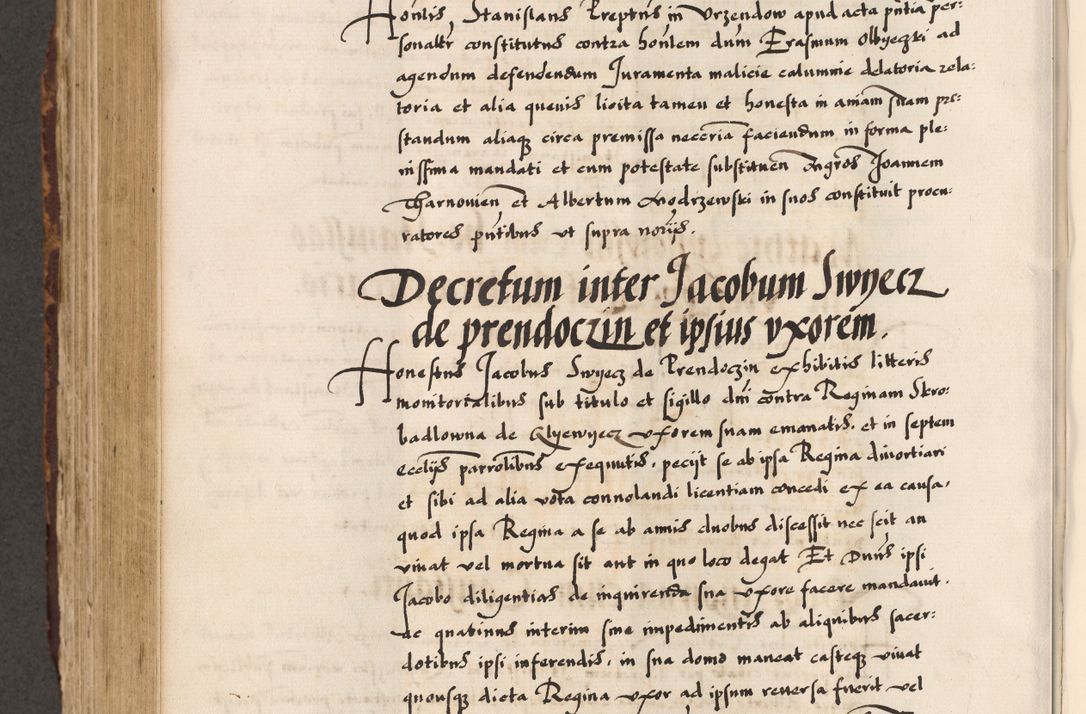 Honestus Stanislaus Kreptus in Vrzendow apud acta pñtia per-
sonaltr constitutus contra honlem dnm Erasmum Olbyeczki ad
agendum defendendum Juramenta malicie calumnie delatoria rela-
toria et alia quevis licita tamen et honesta in aniam suam pre-
standum aliaqz circa premissa necc̃ria faciendum in forma ple-
nissima mandati et cum potestate substituen̄ Mgros Joannem
Tharnovien̄ et Albertum Modrzewski in suos constituit procu-
ratores pñtibus vt supra norijs.
Decretum inter Jacobum Swyecz
de prendoczin et ipsius vxorem.
Honestus Jacobus Swyecz de Prendoczin exhibitis litteris
monitorialibus sub titulo et sigillo dni contra Reginam Skro-
badlowna de Klyewyecz vxorem suam emanatis, et in septem
ecclijs parrolibus exequutis, pecijt se ab ipsa Regina divortiari
et sibi ad alia vota connolandi licentiam concedi ex ea causa,
quod ipsa Regina a se ab annis duobus discessit nec scit an
vivat vel mortua sit aut in quo loco degat Et Dnus ipsi
Jacobo diligentias de inquirenda sua vxore facere mandavit.
ac quatinus interim sine impedimentis ab aliquibus sacer-
dotibus ipsi inferendis, in sua domo maneat casteqz vivat
quousqz dicta Regina vxor ad ipsum reversa fuerit vel